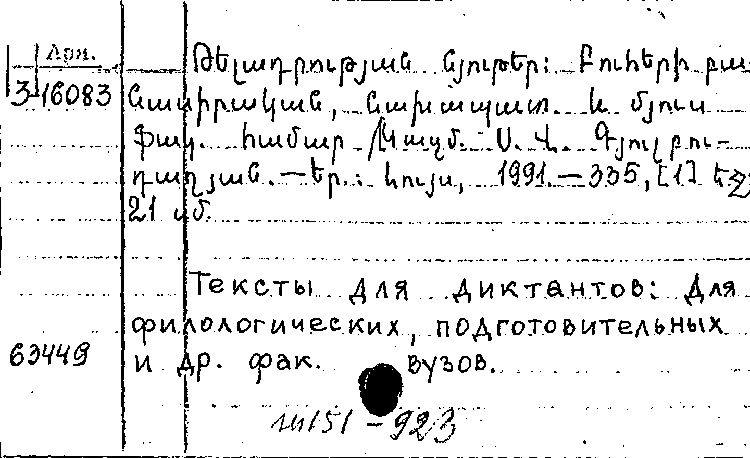 Арм.
Թելադրության նյութեր: Բուհերի բա-
3-16083 նասիրական, նախապատ. և մյուս
ֆակ. համար /Կազմ. Ս. Վ. Գյուլբու-
դաղյան. — Եր.: Լույս, 1991. — 335, [1] էջ;
21 սմ.
Тексты для диктантов: Для
филологических, подготовительных
63449 и др. фак. вузов.
151 - 923